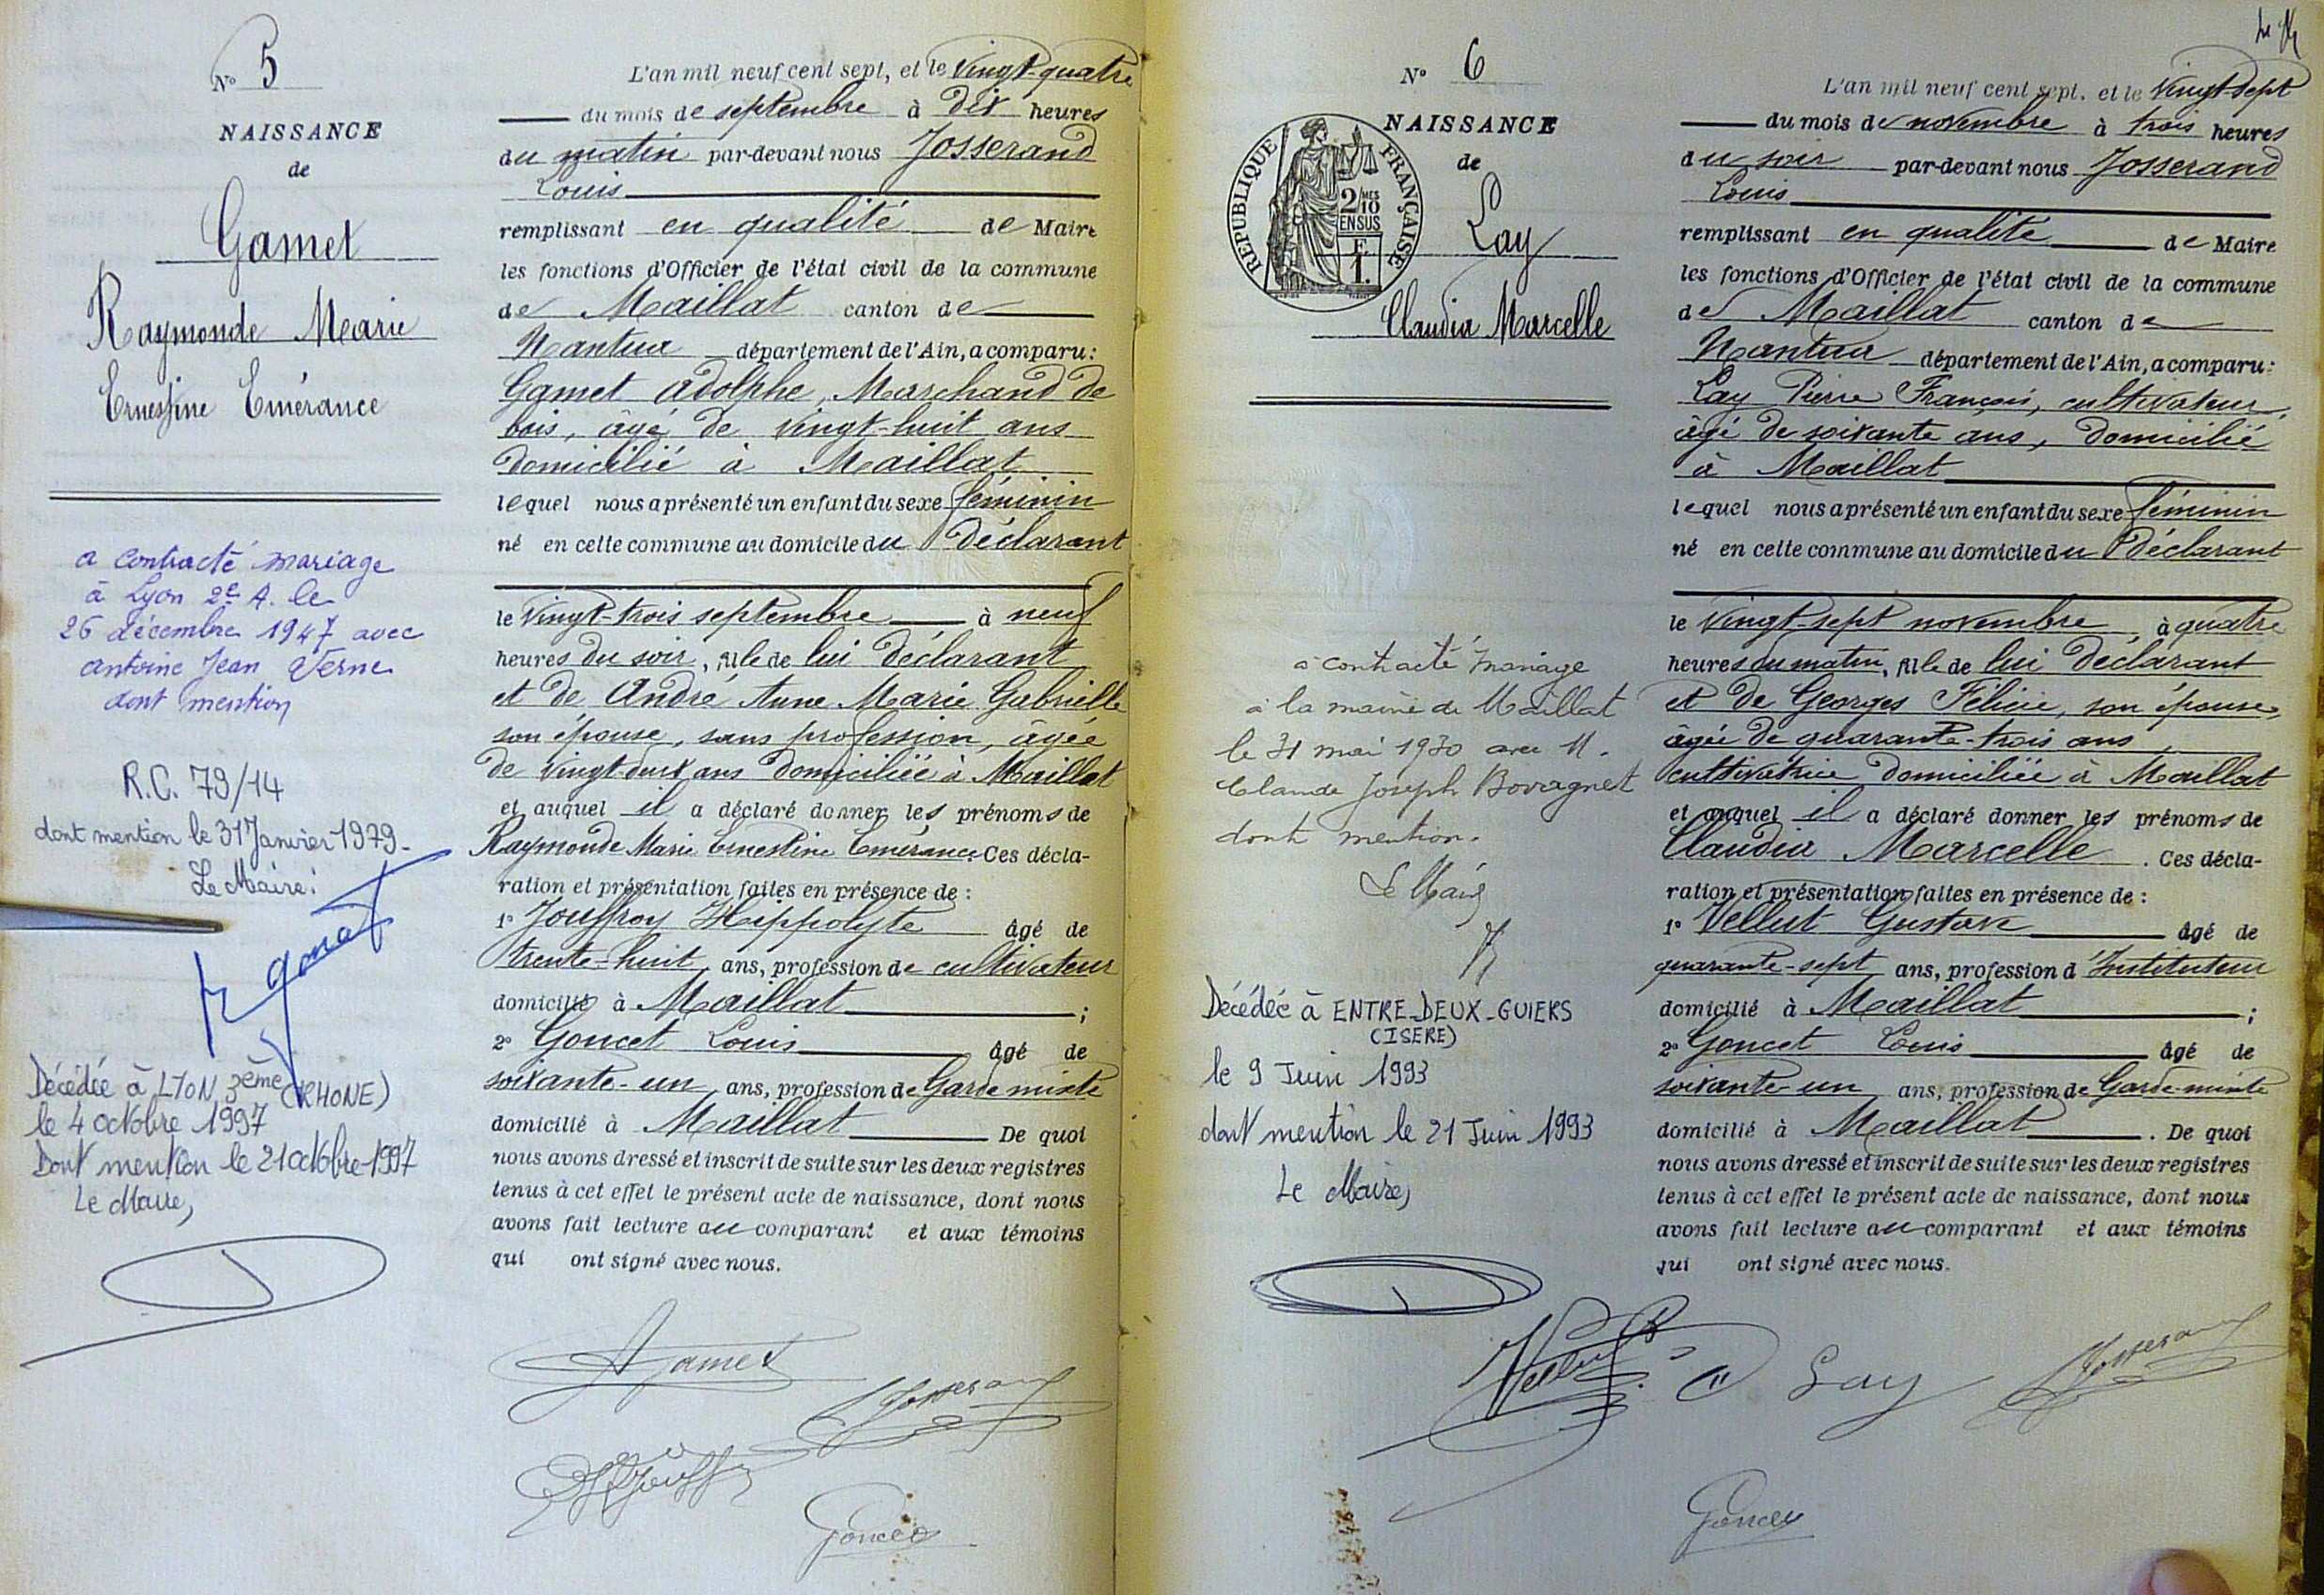 N° 5
NAISSANCE
de
Gamet
Raymonde Marie
Ernestine Emérance
a contracté mariage
à Lyon 2e A. le
26 décembre 1947 avec
Antoine Jean Verne
dont mention
R.C. 79/14
dont mention le 31 Janvier 1979-
Le Maire:
Décédée à LYON 3ème (RHONE)
le 4 octobre 1997
Dont mention le 21 octobre 1997
Le Maire,
L'an mil neuf cent sept, et le vingt-quatre
du mois de septembre à dix heures
du matin par-devant nous Josserand
Louis
remplissant en qualité de Maire
les fonctions d'Officier de l'état civil de la commune
de Maillat canton de
Nantua département de l'Ain, a comparu:
Gamet Adolphe, Marchand de
bois, âgé de vingt-huit ans
domicilié à Maillat
lequel nous a présenté un enfant du sexe féminin
né en cette commune au domicile du déclarant
le vingt-trois septembre à neuf
heures du soir, fille de lui déclarant
et de André Anne Marie Gabrielle
son épouse, sans profession, âgée
de vingt-deux ans domiciliée à Maillat
et auquel il a déclaré donner les prénoms de
Raymonde Marie Ernestine Emérance Ces décla-
ration et présentation faites en présence de :
1° Jouffroy Hippolyte âgé de
trente-huit ans, profession de cultivateur
domicilié à Maillat ;
2° Goncet Louis âgé de
soixante-un ans, profession de Garde mixte
domicilié à Maillat De quoi
nous avons dressé et inscrit de suite sur les deux registres
tenus à cet effet le présent acte de naissance, dont nous
avons fait lecture au comparant et aux témoins
qui ont signé avec nous.
AGamet
Josserand
HJouffroy
Goncet
N° 6
NAISSANCE
de
REPUBLIQUE FRANÇAISE
2/10 MES
EN SUS
F.
1.
Lay
Claudia Marcelle
a contracté mariage
à la mairie de Maillat
le 31 mai 1930 avec M.
Claude Joseph Bovagnet
dont mention.
Le Maire
Décédée à ENTRE-DEUX-GUIERS
(ISERE)
le 9 Juin 1993
dont mention le 21 Juin 1993
Le Maire,
L'an mil neuf cent sept, et le vingt-sept
du mois de novembre à trois heures
du soir par-devant nous Josserand
Louis
remplissant en qualité de Maire
les fonctions d'Officier de l'état civil de la commune
de Maillat canton de
Nantua département de l'Ain, a comparu:
Lay Pierre François, cultivateur,
âgé de soixante ans, domicilié
à Maillat
lequel nous a présenté un enfant du sexe féminin
né en cette commune au domicile du déclarant
le vingt-sept novembre, à quatre
heures du matin, fille de lui déclarant
et de Georges Félicie, son épouse,
âgée de quarante-trois ans,
cultivatrice domiciliée à Maillat
et auquel il a déclaré donner les prénoms de
Claudia Marcelle . Ces décla-
ration et présentation faites en présence de :
1° Vellut Gustave âgé de
quarante-sept ans, profession d'Instituteur
domicilié à Maillat ;
2° Goncet Louis âgé de
soixante-un ans, profession de Garde-mixte
domicilié à Maillat . De quoi
nous avons dressé et inscrit de suite sur les deux registres
tenus à cet effet le présent acte de naissance, dont nous
avons fait lecture au comparant et aux témoins
qui ont signé avec nous.
Vellut
Lay
Josserand
Goncet